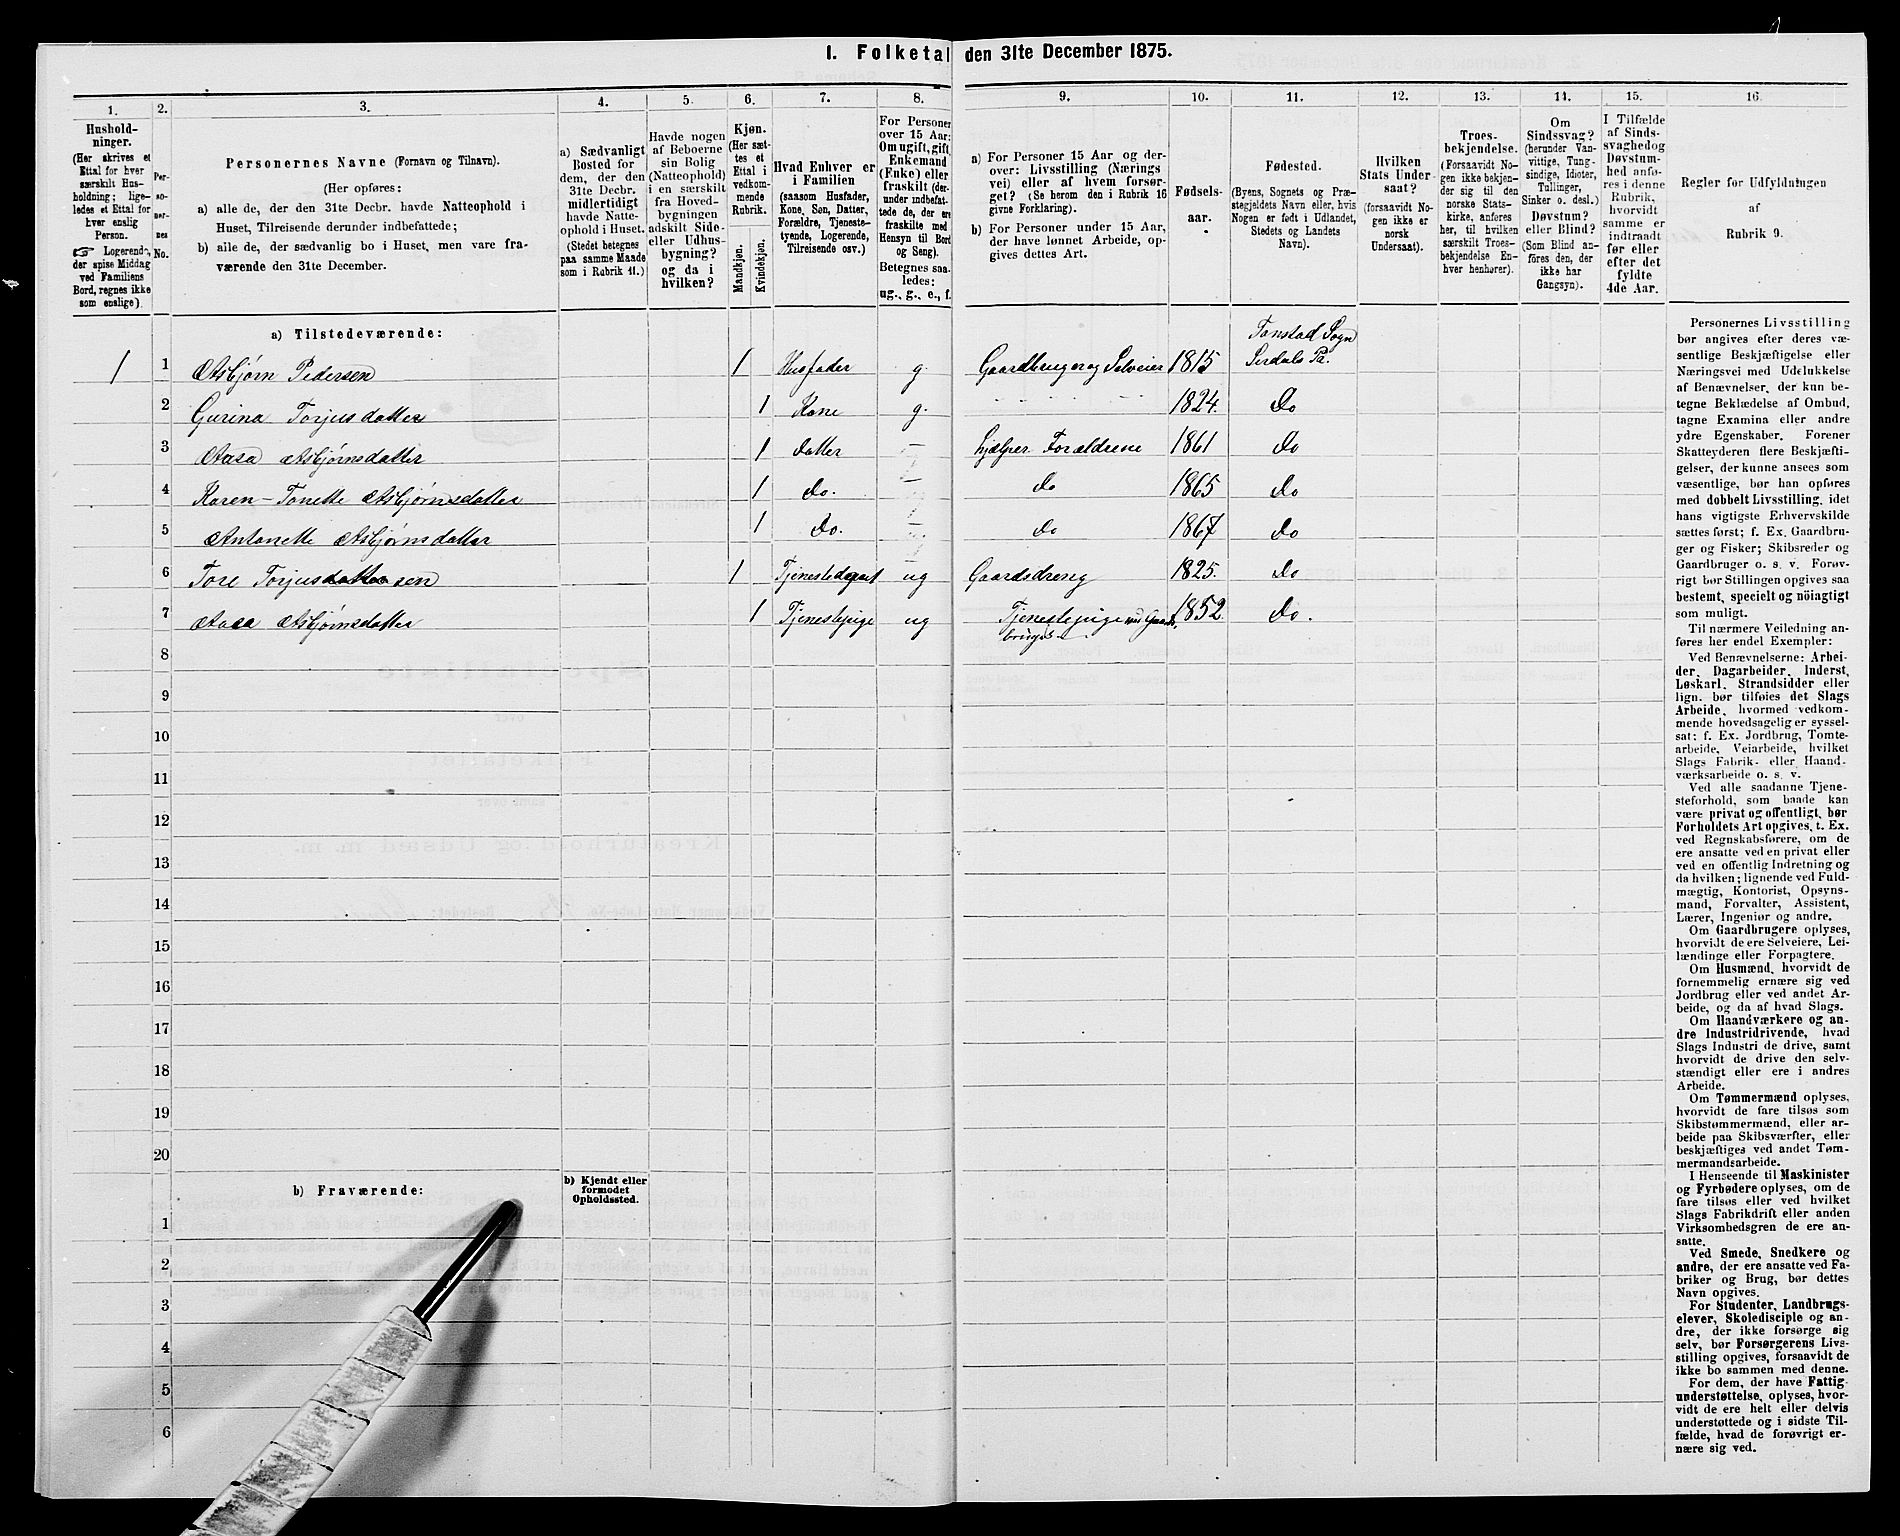 I. Folketal den 31te December 1875.
1. 2. 3. 4. 5. 6. 7. 8. 9. 10. 11. 12. 13. 14. 15. 16.
Hushold-
ninger.
(Her skrives et
Ettal for hver
særskilt Hus-
holdning; lige-
ledes et Ettal for
hver enslig
Person.
☞ Logerende,
der spise Middag
ved Familiens
Bord, regnes ikke
som enslige).
Per-
so-
ner-
nes
No.
Personernes Navne (Fornavn og Tilnavn).
(Her opføres:
a) alle de, der den 31te Decbr. havde Natteophold i
Huset, Tilreisende derunder indbefattede;
b) alle de, der sædvanlig bo i Huset, men vare fra-
værende den 31te December.
a) Sædvanligt
Bosted for
dem, der den
31te Decbr.
midlertidigt
havde Natte-
ophold i Huset.
(Stedet betegnes
paa samme Maade
som i Rubrik 11.)
Havde nogen
af Beboerne
sin Bolig
(Natteophold)
i en særskilt
fra Hoved-
bygningen
adskilt Side-
eller Udhus-
bygning?
og da i
hvilken?
Kjøn.
(Her sæt-
tes et
Ettal i
vedkom-
mende
Rubrik.
Mandkjøn.
Kvindekjøn.
Hvad Enhver er
i Familien
(saasom Husfader,
Kone, Søn, Datter,
Forældre, Tjeneste-
tyende, Logerende,
Tilreisende osv.)
For Personer
over 15 Aar:
Om ugift, gift,
Enkemand
(Enke) eller
fraskilt (der-
under indbefat-
tede de, der ere
fraskilte med
Hensyn til Bord
og Seng).
Betegnes saa-
ledes:
ug., g., e., f.
a) For Personer 15 Aar og der-
over: Livsstilling (Nærings
vei) eller af hvem forsør-
get? (Se herom den i Rubrik 16
givne Forklaring).
b) For Personer under 15 Aar,
der have lønnet Arbeide, op-
gives dettes Art.
Fødsels-
aar.
Fødested.
(Byens, Sognets og Præ-
stegjeldets Navn eller, hvis
Nogen er født i Udlandet,
Stedets og Landets
Navn).
Hvilken
Stats Under-
saat?
(forsaavidt No-
gen ikke er
norsk
Undersaat).
Troes-
bekjendelse.
(Forsaavidt No-
gen ikke bekjen-
der sig til den
norske Stats-
kirke, anføres
her, til hvilken
særskilt Troes-
bekjendelse En-
hver henhører).
Om
Sindssvag?
(herunder Van-
vittige, Tung-
sindige, Idioter,
Tullinger,
Sinker o. desl.)
Døvstum?
eller Blind?
(Som Blind an-
føres den, der
ikke har
Gangsyn).
I Tilfælde
af Sinds-
svaghed og
Døvstum-
hed anfø-
res i denne
Rubrik,
hvorvidt
samme er
indtraadt
før eller
efter det
fyldte
4de Aar.
Regler for Udfyldningen
af
Rubrik 9.
a) Tilstedeværende:
Tonstad Sogn
1 1 Asbjørn Pedersen 1 Husfader g. Gaardbruger og Selveier 1815 Sirdals Pr.
2 Gurina Torjusdatter 1 Kone g. 1824. Do
3 Aasa Asbjørnsdatter 1 datter — hjælper Forældrene 1861 Do
4 Karen-Tonette Asbjørnsdatter 1 do. — do 1865 Do
5 Antonette Asbjørnsdatter 1 Do. — do 1867 Do
6 Tore Torjusdattersen 1 ug Gaardsdreng 1825. Do
7 Aasa Asbjørnsdatter 1 Tjenestepige ug Tjenestepige ved Gaards- 1852. Do.
bruget
8
9
10
11
12
13
14
15
16
17
18
19
20
b) Fraværende:
b) Kjendt eller
formodet
Opholdssted.
1
2
3
4
5
6
Personernes Livsstilling
bør angives efter deres væ-
sentlige Beskjæftigelse eller
Næringsvei med Udelukkelse
af Benævnelser, der kun be-
tegne Beklædelse af Ombud,
tagne Examina eller andre
ydre Egenskaber. Forener
Skatteyderen flere Beskjæfti-
gelser, der kunne ansees som
væsentlige, bør han opføres
med dobbelt Livsstilling, idet
hans vigtigste Erhvervskilde
sættes først; f. Ex. Gaardbru-
ger og Fisker; Skibsreder og
Gaardbruger o. s. v. Forøv-
rigt bør Stillingen opgives saa
bestemt, specielt og nöiagtigt
som muligt.
Til nærmere Veiledning an-
føres her endel Exempler:
Ved Benævnelserne: Arbei-
der, Dagarbeider, Inderst,
Løskarl, Strandsidder eller
lign. bør tilføies det Slags
Arbeide, hvormed vedkom-
mende hovedsagelig er syssel-
sat; f. Ex. Jordbrug, Tomte-
arbeide, Veiarbeide, hvilket
Slags Fabrik- eller Haand-
værksarbeide o. s. v.
Ved alle saadanne Tjene-
steforhold, som baade kan
være privat og offentligt, bør
Forholdets Art opgives, t. Ex.
ved Regnskabsførere, om de
ere ansatte ved en privat eller
ved en offentlig Indretning og
da hvilken; lignende ved Fuld-
mægtig, Kontorist, Opsyns-
mand, Forvalter, Assistent,
Lærer, Ingeniør og andre.
Om Gaardbrugere oplyses,
hvorvidt de ere Selveiere, Lei-
lændinge eller Forpagtere.
Om Husmænd, hvorvidt de
fornemmelig ernære sig ved
Jordbrug eller ved andet Ar-
beide, og da af hvad Slags.
Om Haandværkere og an-
dre Industridrivende, hvad
Slags Industri de drive, samt
hvorvidt de drive den selv-
stændigt eller ere i andres
Arbeide.
Om Tømmermænd oplyses,
hvorvidt de fare tilsøs som
Skibstømmermænd, eller ar-
beide paa Skibsværfter, eller
beskjæftiges ved andet Tøm-
mermandsarbeide.
I Henseende til Maskinister
og Fyrbødere oplyses, om de
fare tilsøs eller ved hvilket
Slags Fabrikdrift eller anden
Virksomhedsgren de ere an-
satte.
Ved Smede, Snedkere og
andre, der ere ansatte ved Fa-
briker og Brug, bør dettes
Navn opgives.
For Studenter, Landbrugs-
elever, Skoledisciple og an-
dre, der ikke forsørge sig
selv, bør Forsørgerens Livs-
stilling opgives, forsaavidt de
ikke bo sammen med denne.
For dem, der have Fattig-
understøttelse, oplyses, hvor-
vidt de ere helt eller delvis
understøttede og i sidste Til-
fælde, hvad de forøvrigt er-
nære sig ved.